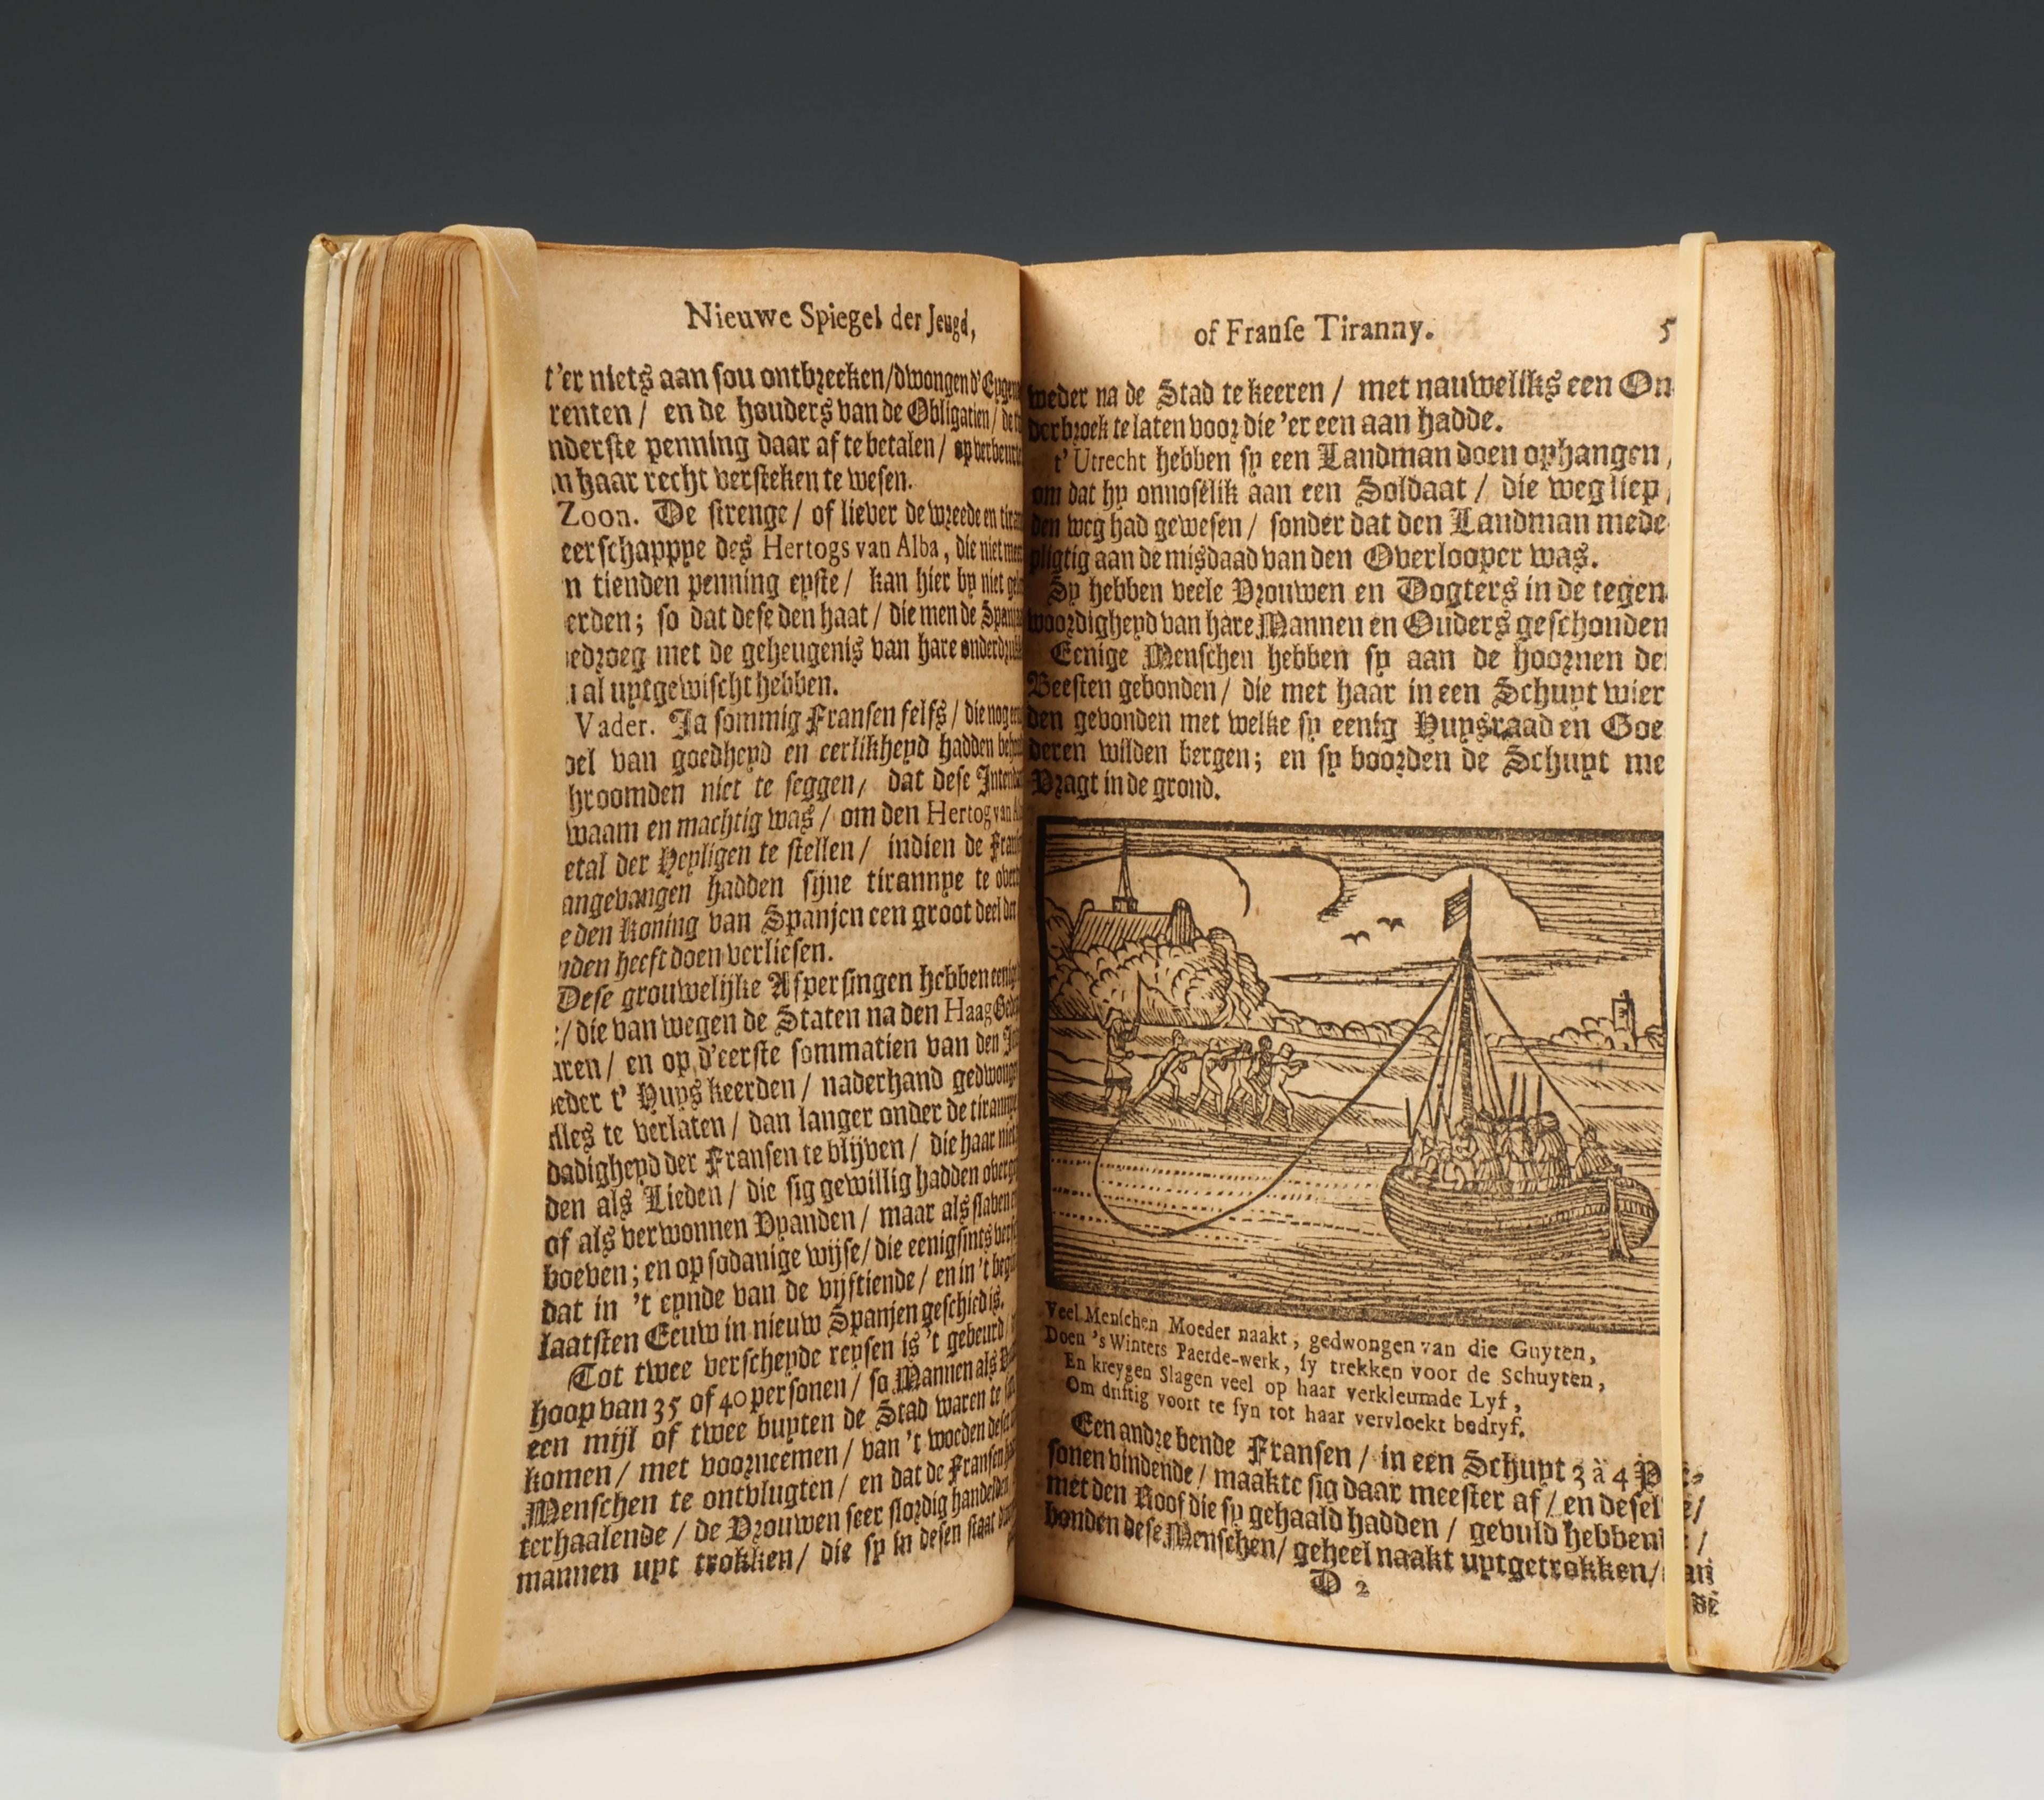 Nieuwe Spiegel der Jeugd,
t'er niets aan sou ontbreeken/dwongen d'
renten / en de houders van de Obligatien /
nderste penning daar af te betalen / op
n haar recht versteken te wesen.
Zoon. De strenge / of liever de wreede en
eerschappye des Hertogs van Alba, die niet
n tienden penning eyste / kan hier by niet
erden; so dat dese den haat / die men de
edroeg met de geheugenis van hare
al uytgewischt hebben.
Vader. Ja sommig Fransen selfs / die nog
el van goedheyd en eerlikheyd hadden
hroomden niet te seggen, dat dese
waam en machtig was / om den Hertog van
etal der Heyligen te stellen / indien de
angevangen hadden sijne tirannye te
e den Koning van Spanjen een groot deel der
nden heeft doen verliesen.
Dese grouwelijke Afpersingen hebben
/ die van wegen de Staten na den Haag
aren / en op d'eerste sommatien van den
eder t' Huys keerden / naderhand
lles te verlaten / dan langer onder de
dadigheyd der Fransen te blijven / die haar
den als Lieden / die sig gewillig hadden
of als verwonnen Vyanden / maar als
boeven; en op sodanige wijse / die eenigsints
dat in 't eynde van de vijftiende / en in 't
laatsten Eeuw in nieuw Spanjen geschied is.
Tot twee verscheyde reysen is 't gebeurd /
hoop van 35 of 40 personen / so Mannen als
een mijl of twee buyten de Stad waren te
komen / met voorneemen / van 't woeden
Menschen te ontvlugten / en dat de Fransen
terhaalende / de Vrouwen seer slordig handelden
mannen uyt trokken / die sy in desen staat
of Franse Tiranny. 5
weder na de Stad te keeren / met nauweliks een On
derbroek te laten voor die 'er een aan hadde.
t' Utrecht hebben sy een Landman doen ophangen,
om dat hy onnoselik aan een Soldaat / die weg liep,
den weg had gewesen / sonder dat den Landman mede-
pligtig aan de misdaad van den Overlooper was.
Sy hebben veele Vrouwen en Dogters in de tegen-
woordigheyd van hare Mannen en Ouders geschonden
Eenige Menschen hebben sy aan de hoornen de
Beesten gebonden / die met haar in een Schuyt wier
den gevonden met welke sy eenig Huysraad en Goe
deren wilden bergen; en sy boorden de Schuyt me
Vragt in de grond.
Veel Menschen Moeder naakt, gedwongen van die Guyten,
Doen 's Winters Paerde-werk, sy trekken voor de Schuyten,
En kreygen Slagen veel op haar verkleumde Lyf,
Om driftig voort te syn tot haar vervloekt bedryf.
Een andre bende Fransen / in een Schuyt 3 à 4
sonen vindende / maakte sig daar meester af / en
met den Roof die sy gehaald hadden / gevuld
bonden dese Menschen / geheel naakt uytgetrokken /
D 2